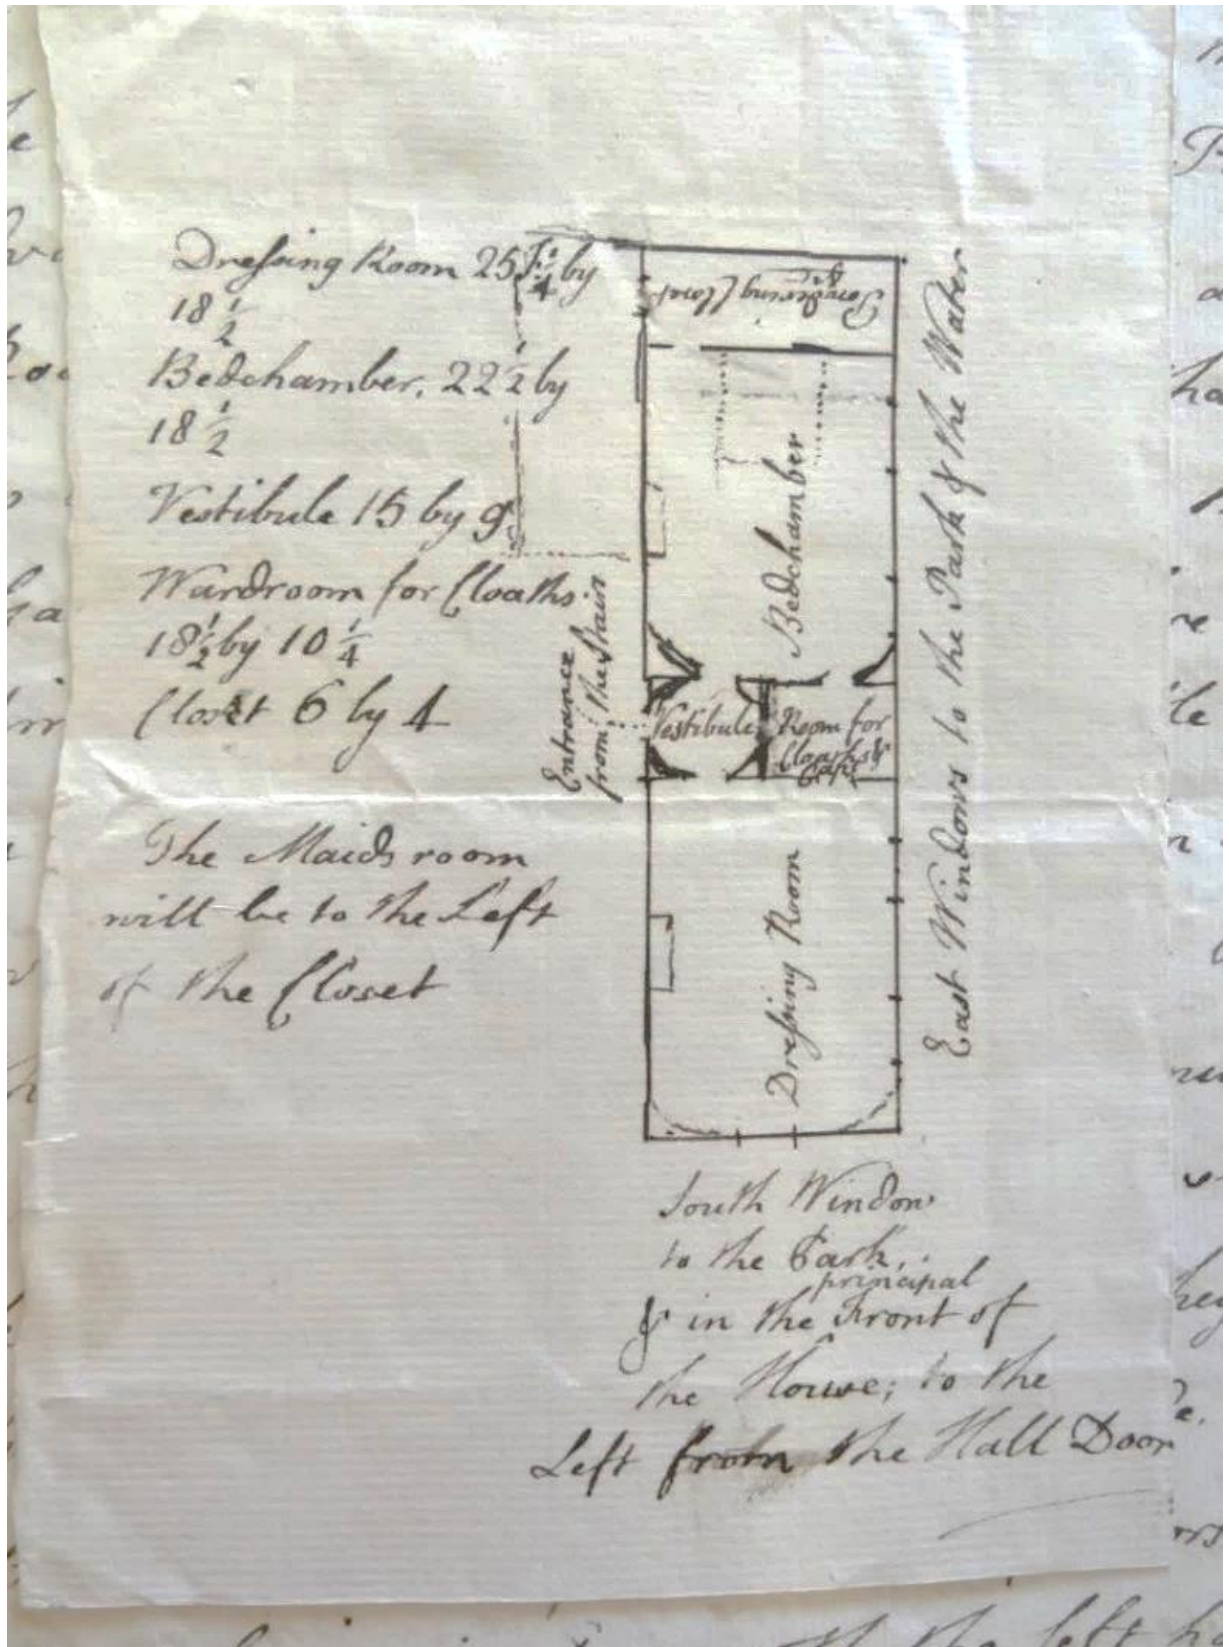 Dressing Room 25 F. 1/4 by
18 1/2
Bedchamber, 22 1/2 by
18 1/2
Vestibule 15 by 9
Wardroom for Cloaths.
18 1/2 by 10 1/4
Closet 6 by 4
The Maids room
will be to the Left
of the Closet
Powdering Closet
&c
Bedchamber
Entrance
from the Stair
Vestibule
Room for
Cloaths &
Dressing Room
East Windows to the Park & the Water
South Window
to the Park,
principal
& in the Front of
the House; to the
Left from the Hall Door